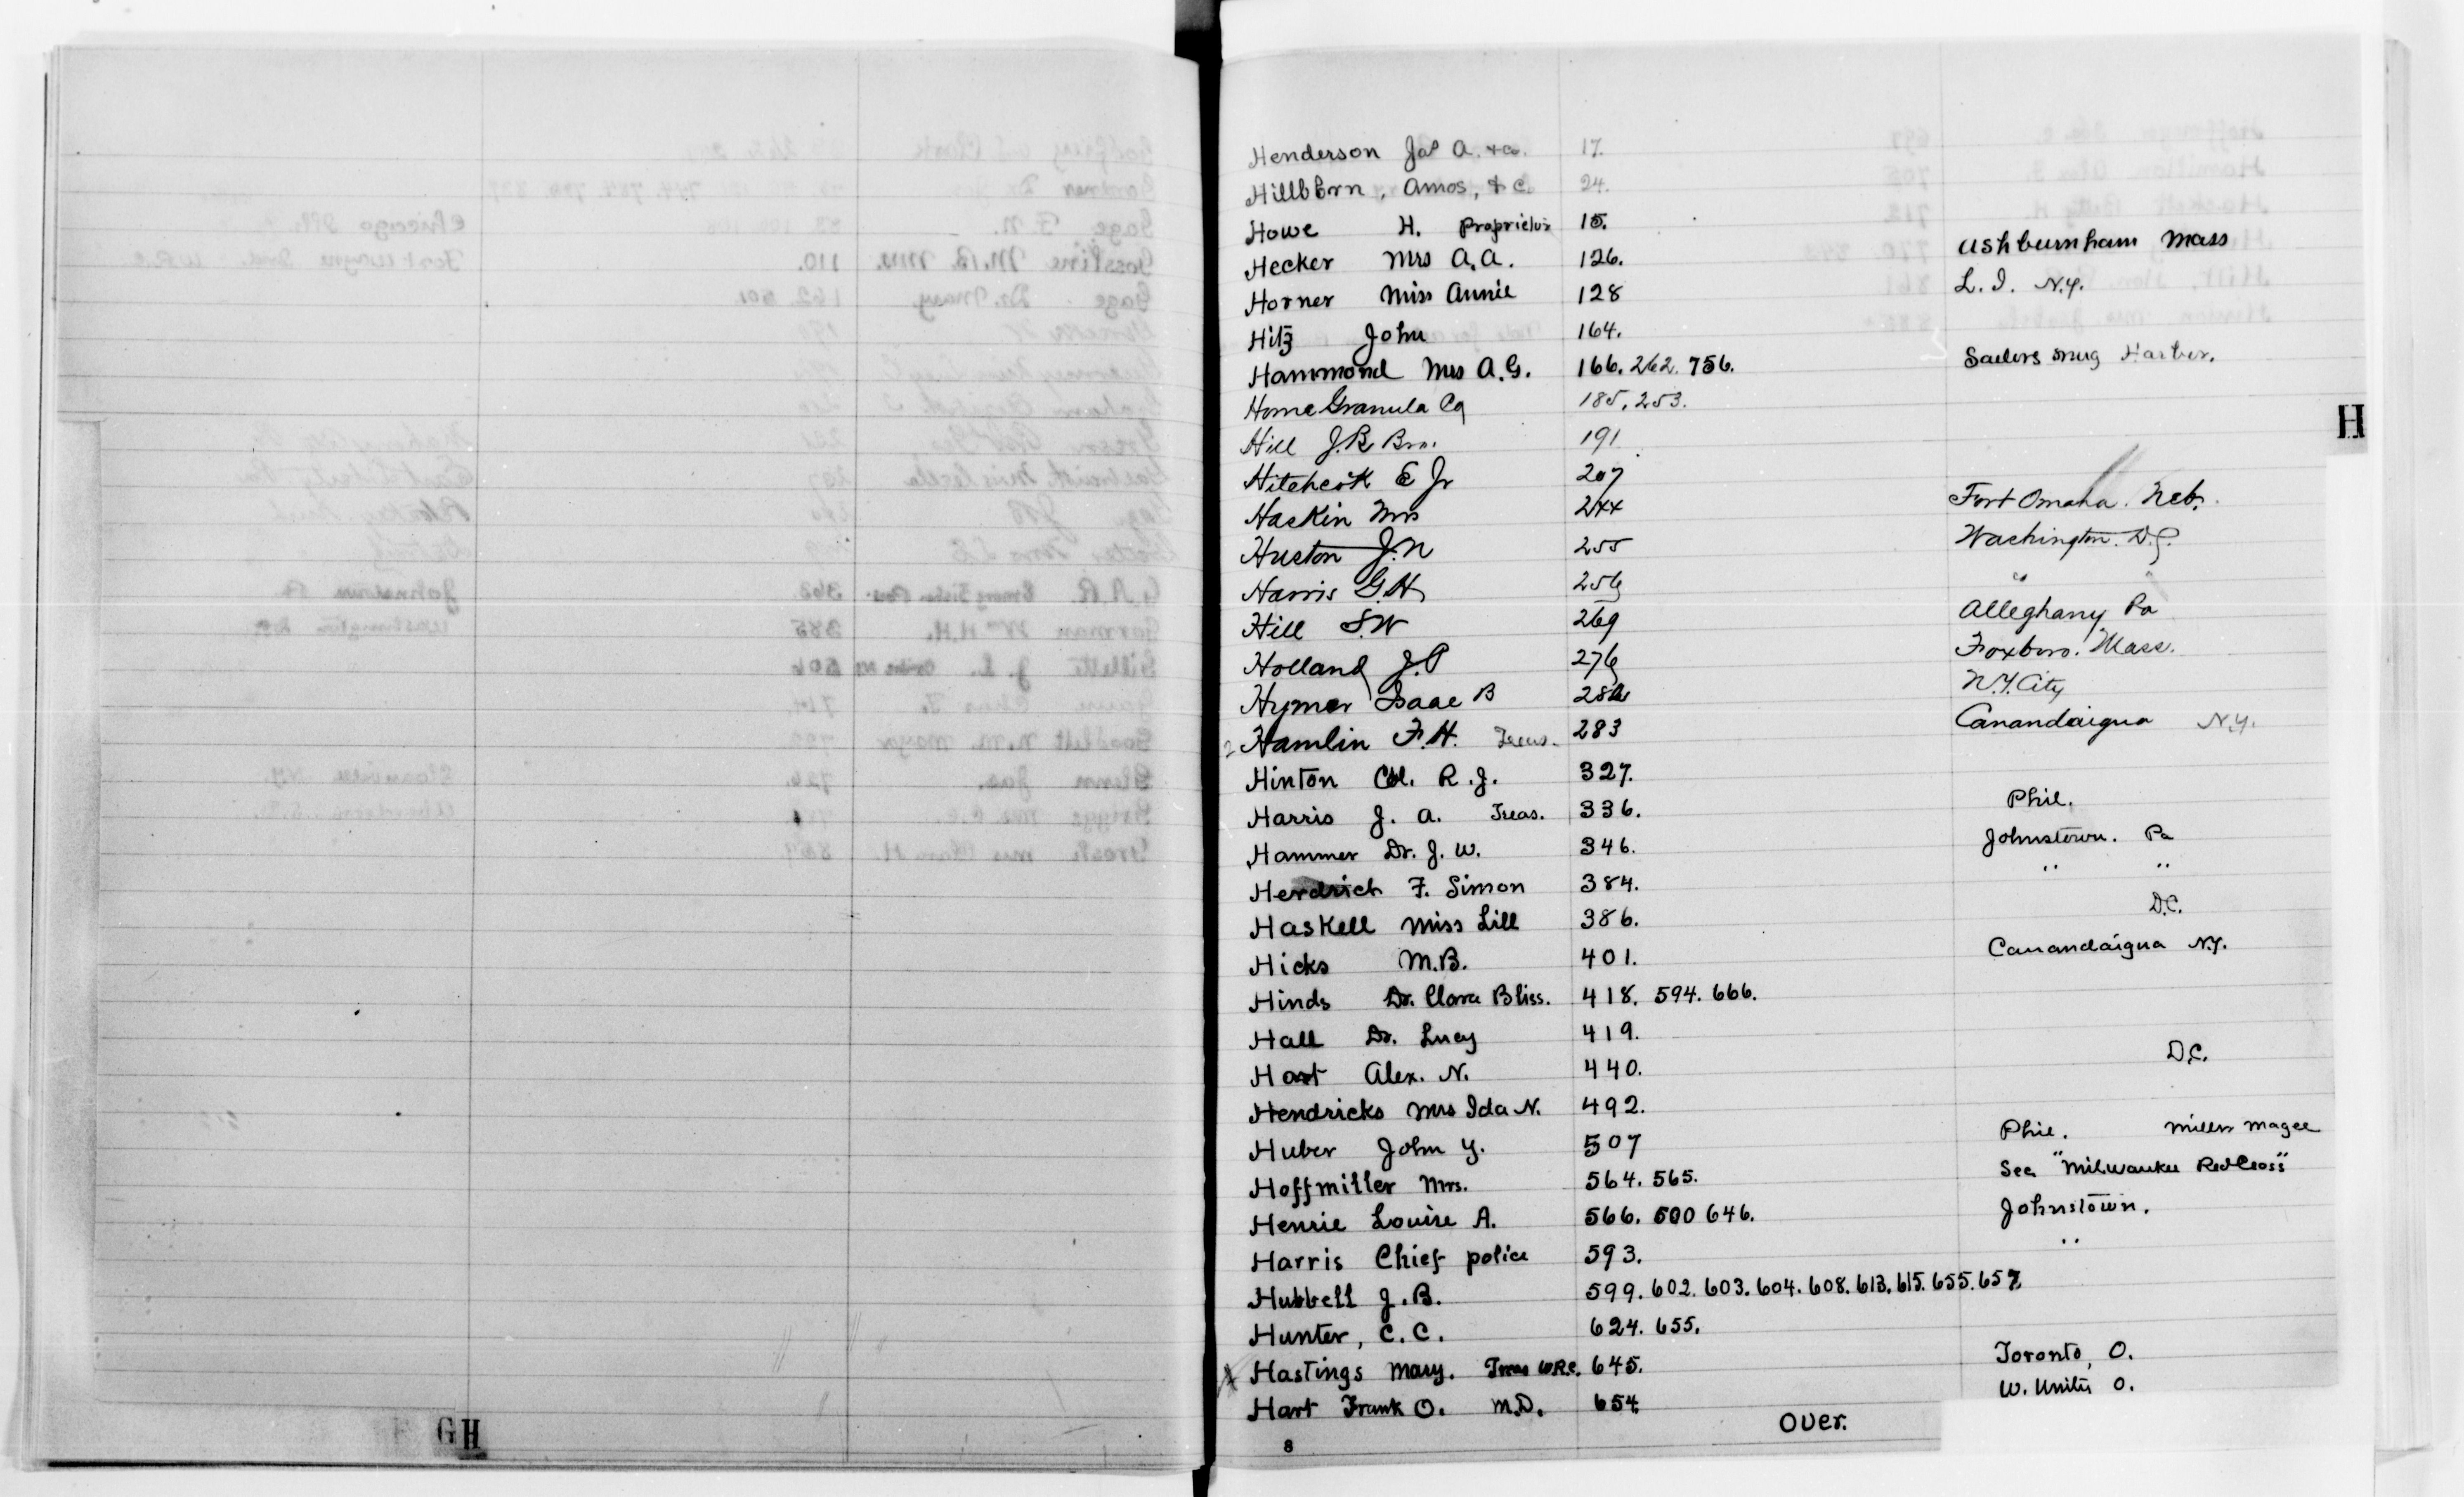 Henderson Jas A. & Co. 17.
Hillborn, Amos, & C. 24.
Howe H. Proprietor 15.
Hecker Mrs A.A. 126. Ashburnham Mass
Horner Miss Annie 128 L.I. N.Y.
Hitz John 164.
Hammond Mrs A.G. 166. 262. 756. Sailors Snug Harbor.
Home Granula Co 185, 253.
Hill J.B. Bro. 191
Hitchcock E Jr 207
Haskin Mrs 244 Fort Omaha. Neb.
Huston J.N 255 Washington. D.C.
Harris G.H 256 " "
Hill S.W 269 Alleghany Pa
Holland J.P 276 Foxboro. Mass.
Hymer Isaac B N.Y. City
Hamlin F.H. Treas. 283 Canandaigua N.Y.
Hinton Col. R.J. 327.
Harris J. A. Treas. 336. Phil.
Hammer Dr. J. W. 346. Johnstown. Pa
F. Simon 384. " "
Haskell Miss Lill 386. D.C.
Hicks M.B. 401. Canandaigua N.Y.
Hinds Dr. Clara Bliss. 418. 594. 666.
Hall Dr. Lucy 419.
Hart Alex. N. 440. D.C.
Hendricks Mrs Ida N. 492.
Huber John Y. 507 Phil. Miller Magee
Hoffmiller Mrs. 564. 565. See "Milwaukee Red Cross"
Henrie Louise A. 566. 646. Johnstown.
Harris Chief police 593. "
Hubbell J.B. 599. 602. 603. 604. 608. 613. 615. 655. 657
Hunter, C.C. 624. 655.
Hastings Mary. Treas W.R.C. 645. Toronto, O.
Hart Frank O. M.D. 654 W. Unity O.
over.
8
H
GH